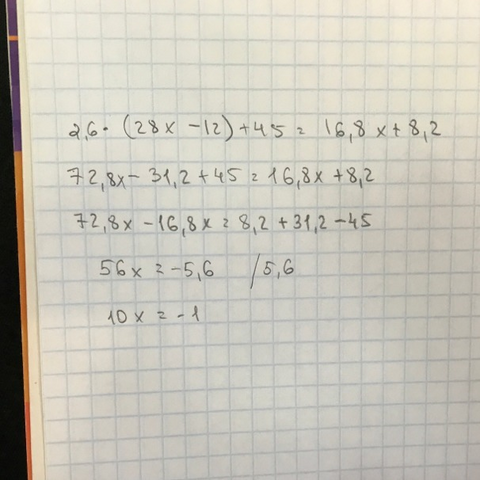 2,6 · (28x - 12) + 45 = 16,8x + 8,2
72,8x - 31,2 + 45 = 16,8x + 8,2
72,8x - 16,8x = 8,2 + 31,2 - 45
56x = -5,6 /5,6
10x = -1